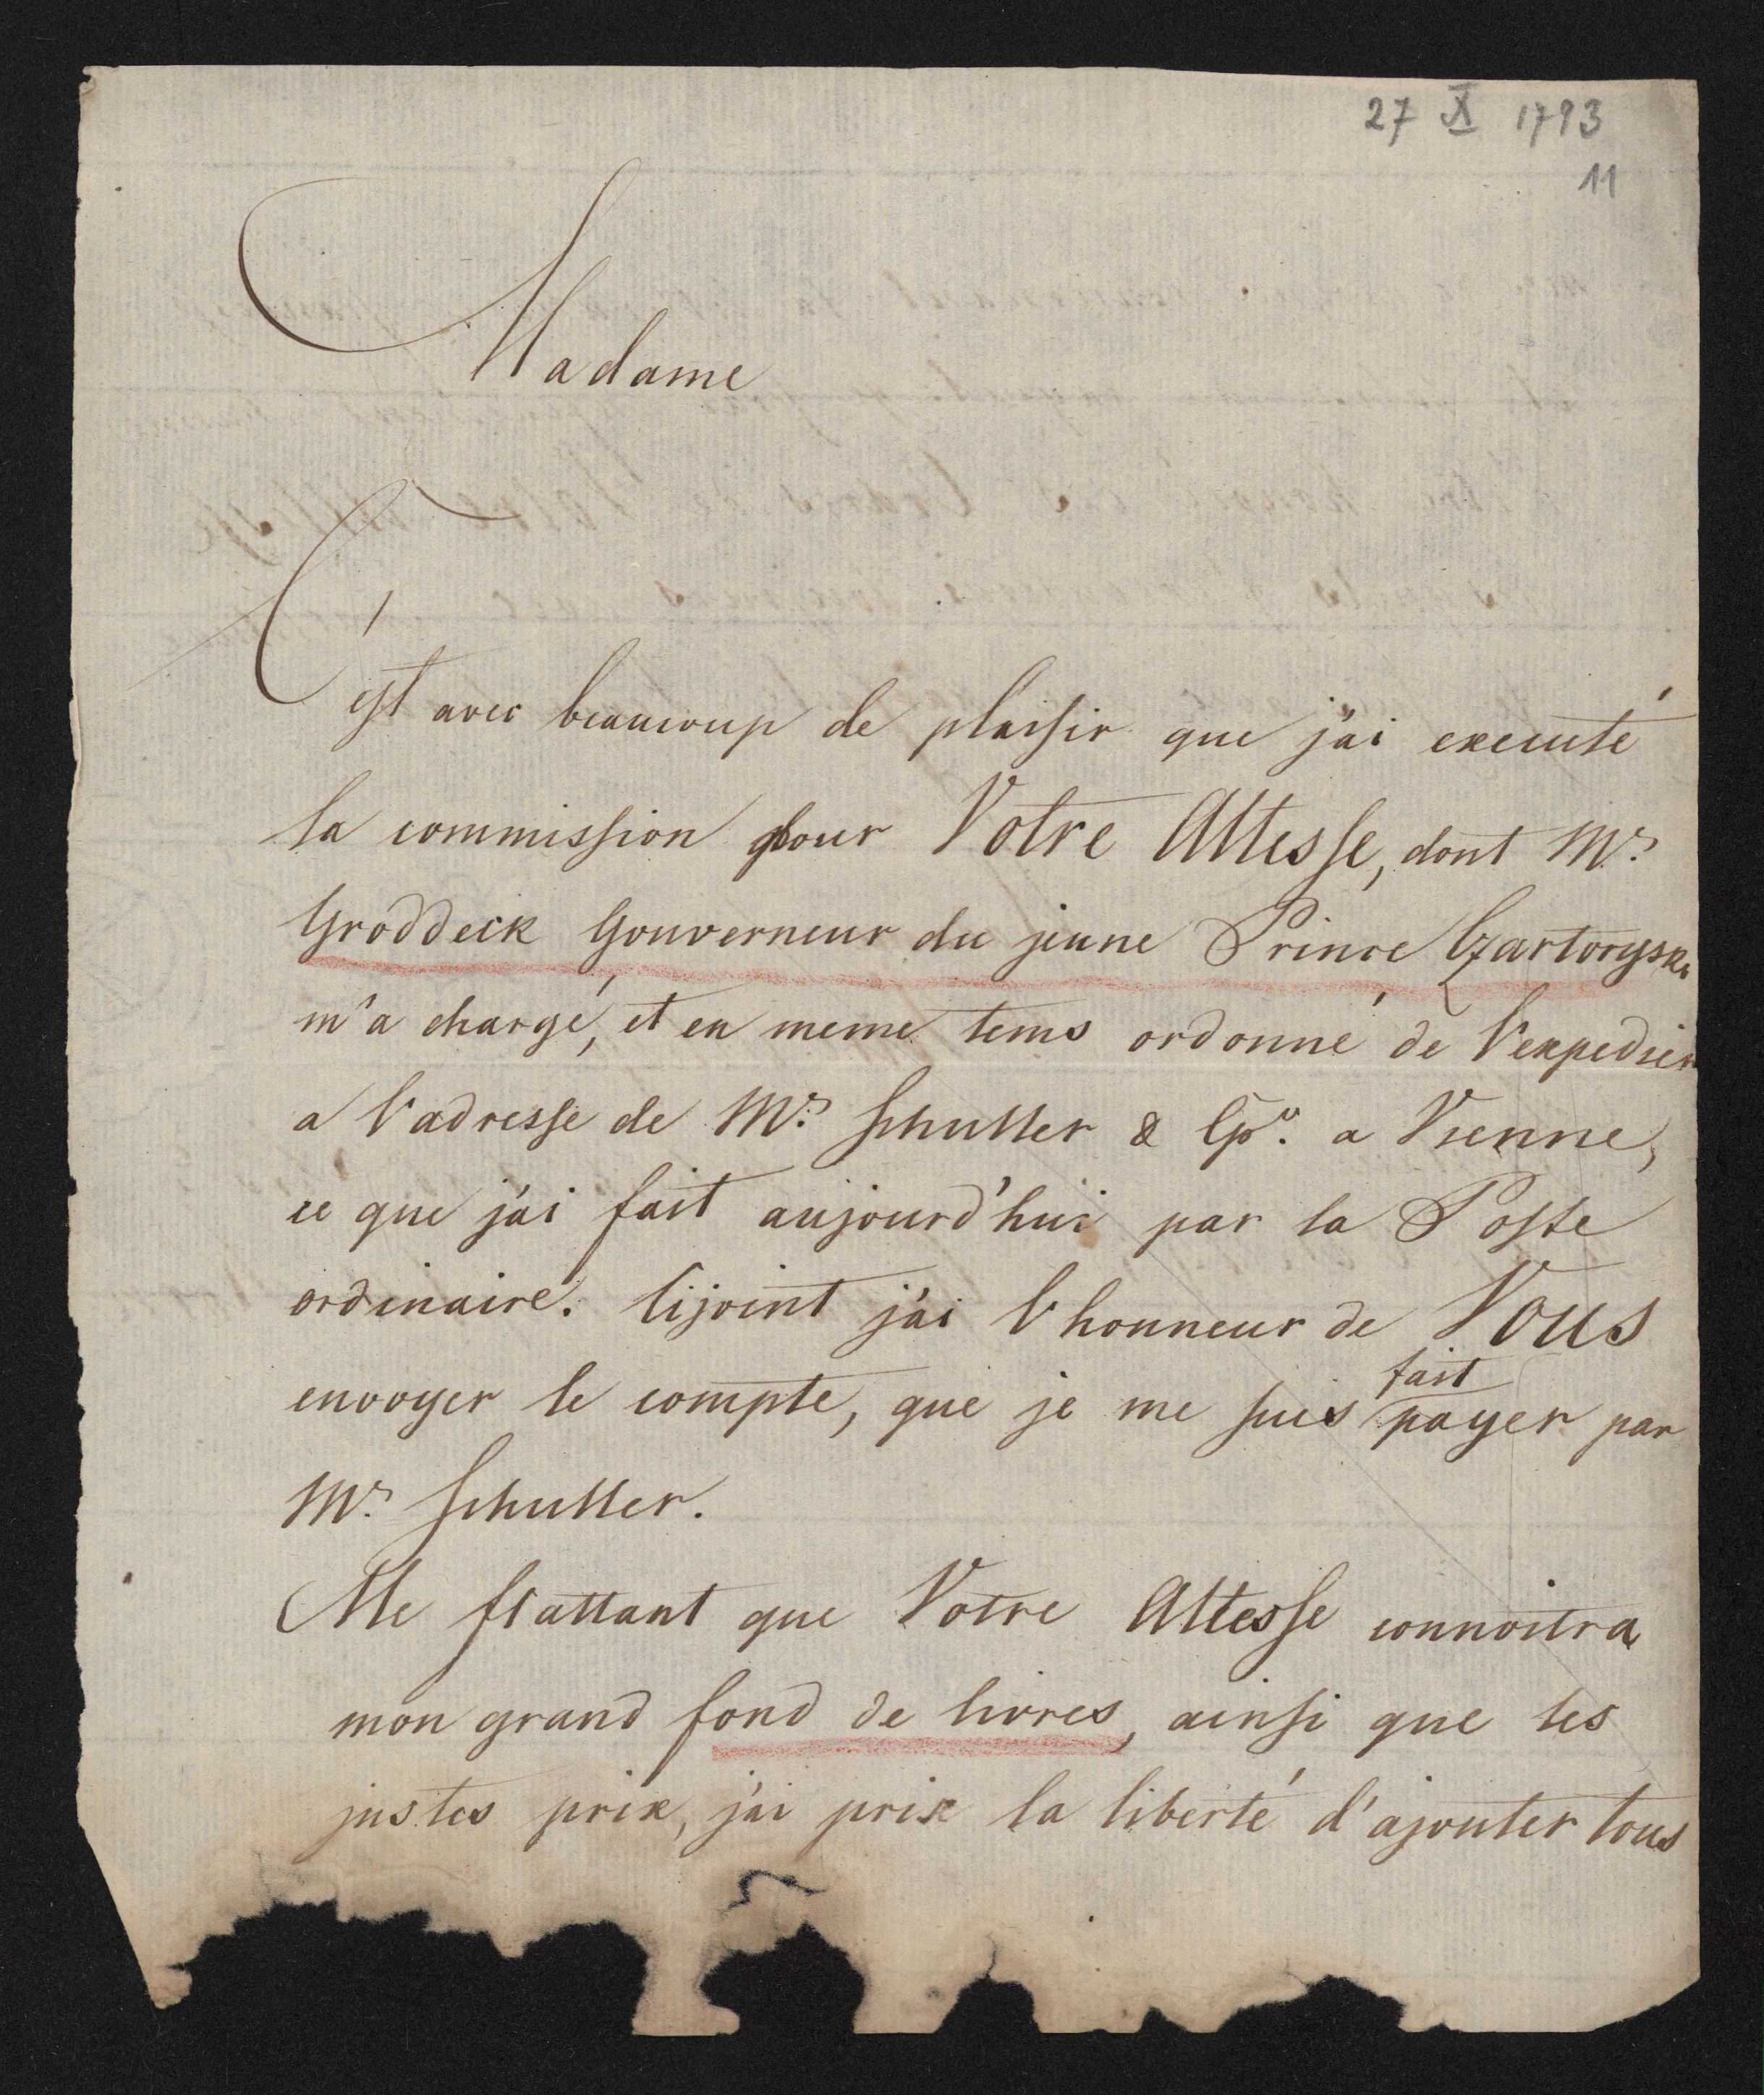 27 X 1793
11
Madame
C'est avec beaucoup de plaisir que j'ai executé
la commission pour Votre Altesse, dont Mr.
Groddeck Gouverneur du jeune Prince Czartoryski
m'a chargé, et en meme tems ordonné de l'expedier
a l'adresse de Mr. Schuller & Cp. a Vienne,
ce que j'ai fait aujourd'hui par la Poste
ordinaire. Cijoint j'ai l'honneur de Vous
envoyer le compte, que je me suis fait payer par
Mr. Schuller.
Me flattant que Votre Altesse connoitra
mon grand fond de livres, ainsi que les
justes prix, j'ai prix la liberté d'ajouter tous